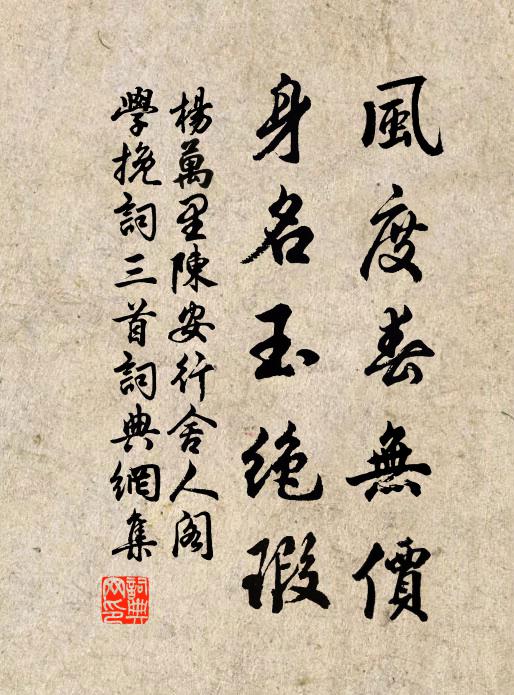 風度春無價
身名玉絕瑕
楊萬里陳安行舍人閣
學挽詞三首詞典網集
詞典网印